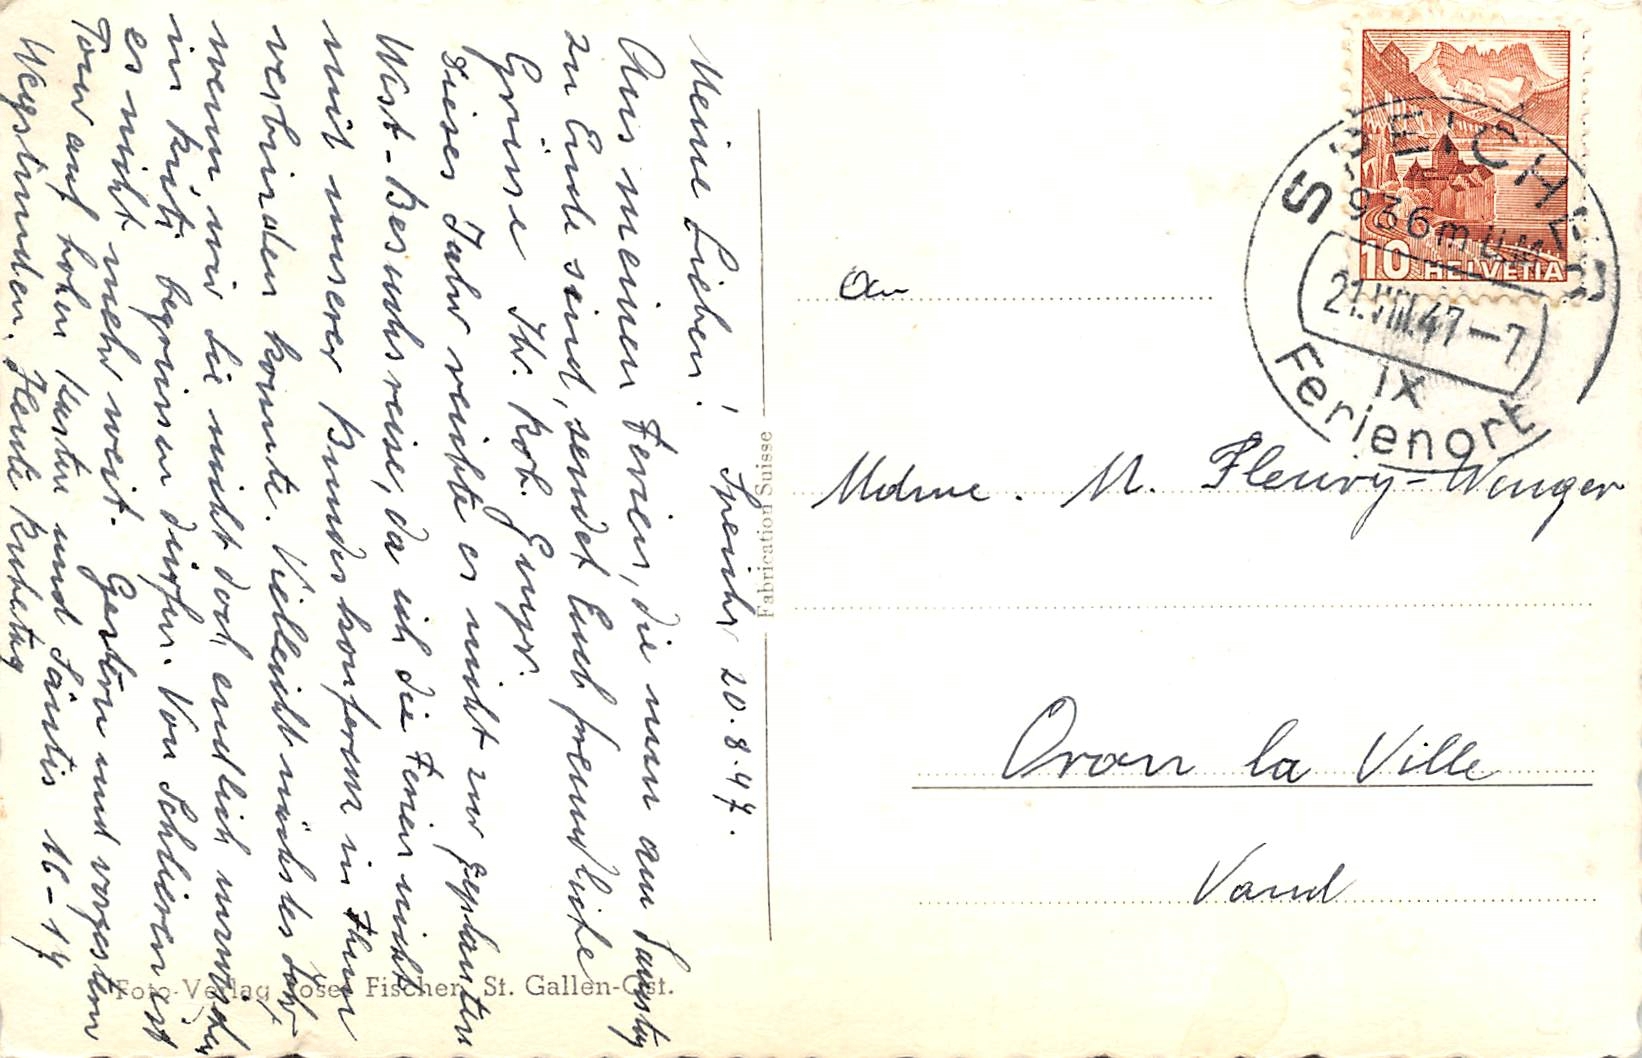 Speicher 20.8.47.
Meine Lieben!
Aus meinen Ferien, die nun am Samstag
zu Ende sind, sendet Euch freundliche
Grüsse Ihr. Rob.
Dieses Jahr reichte es nicht zur geplanten
West-Besuchsreise, da ich die Ferien nicht
mit unserer Bundeskonferenz in Thun
verbinden konnte. Vielleicht nächstes Jahr,
wenn wir Sie nicht doch endlich
in begrüssen dürfen. Von Schlieren ist
es nicht mehr weit. Gestern und vorgestern
Tour auf hohen Kasten und Säntis 16-17
Wegstunden. Heute Ruhetag
Fabrication Suisse
Foto-Verlag Josef Fischer, St. Gallen-Ost.
10 HELVETIA
SPEICHER
936 m ü.M.
21.VIII.47-7
IX
Ferienort
An
Mdme. M. Fleury-Winger
Oron la Ville
Vaud